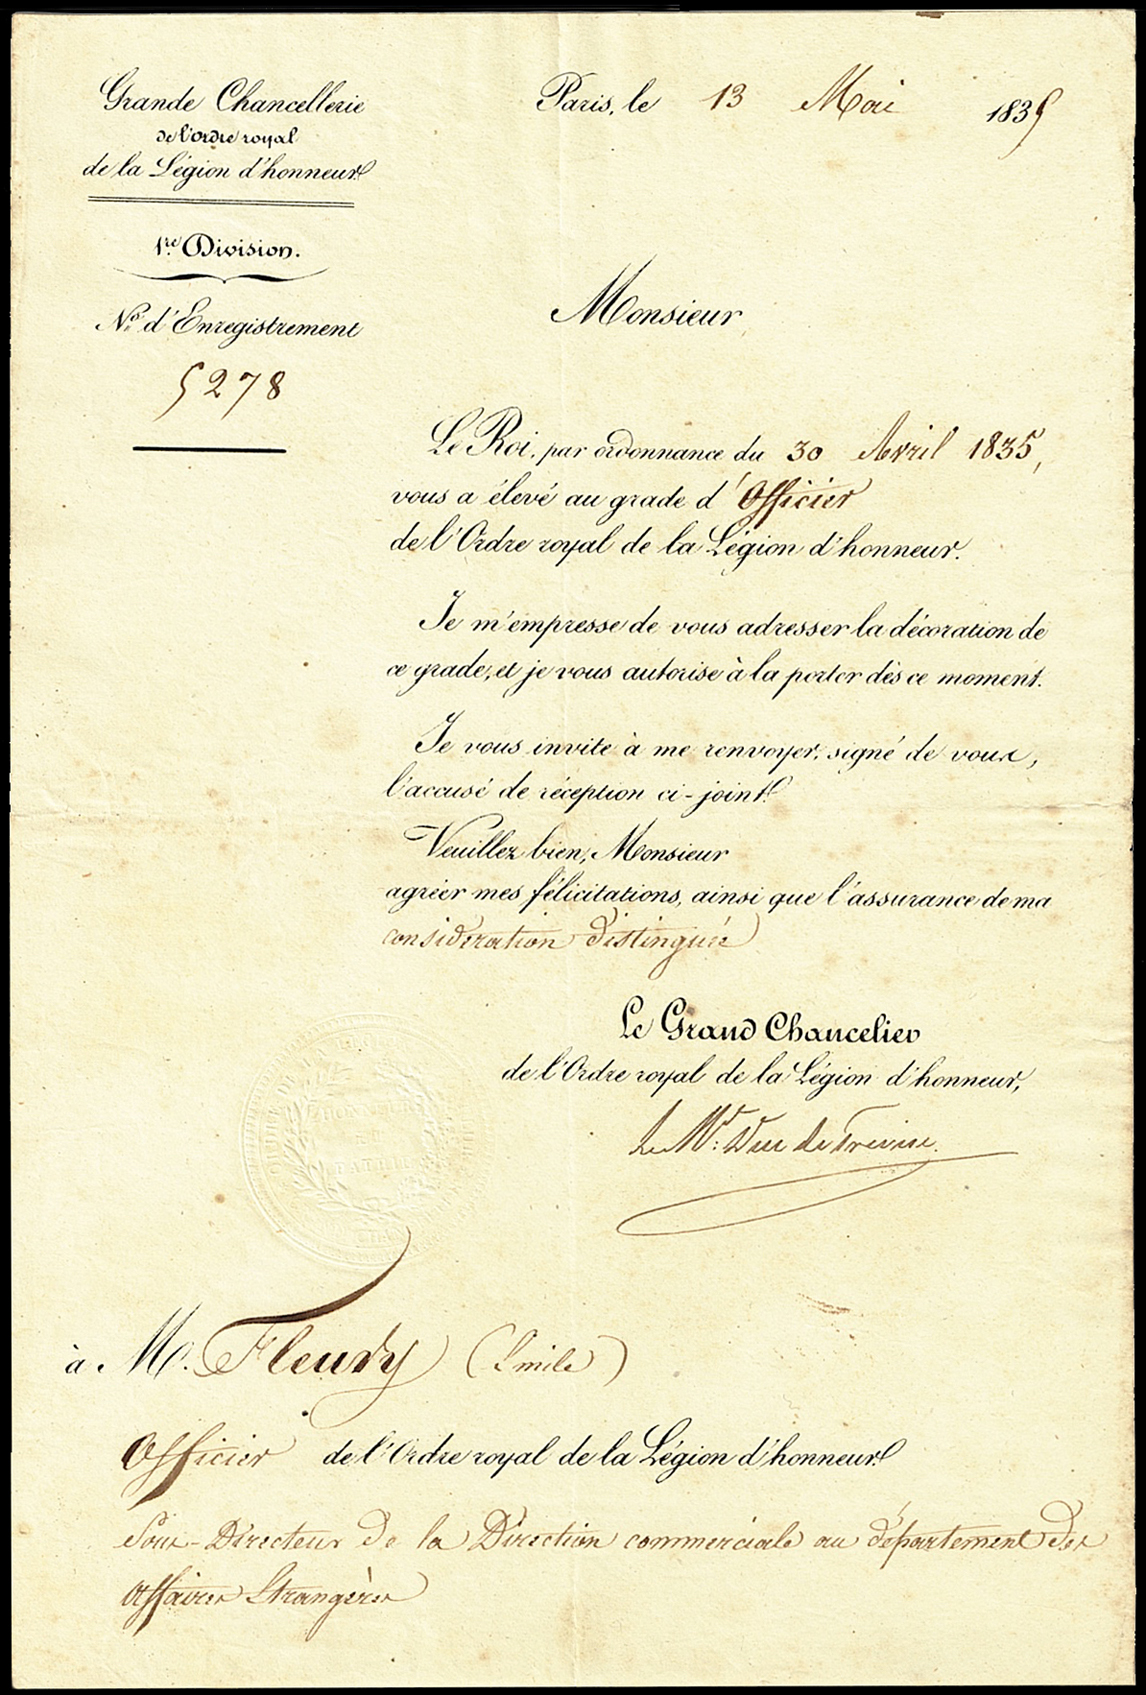 Grande Chancellerie
de l'Ordre royal
de la Légion d'honneur
1re Division.
No. d'Enregistrement
5278
Paris, le 13 Mai 1835
Monsieur
Le Roi, par ordonnance du 30 Avril 1835,
vous a élevé au grade d'Officier
de l'Ordre royal de la Légion d'honneur.
Je m'empresse de vous adresser la décoration de
ce grade, et je vous autorise à la porter dès ce moment.
Je vous invite à me renvoyer, signé de vous,
l'accusé de réception ci-joint.
Veuillez bien, Monsieur
agréer mes félicitations, ainsi que l'assurance de ma
considération distinguée
Le Grand Chancelier
de l'Ordre royal de la Légion d'honneur,
Le Mal. Duc de Trévise.
HONNEUR
ET
PATRIE
à M. Fleury (Emile)
Officier de l'Ordre royal de la Légion d'honneur
Sous-Directeur de la Direction commerciale au département des
Affaires Etrangères